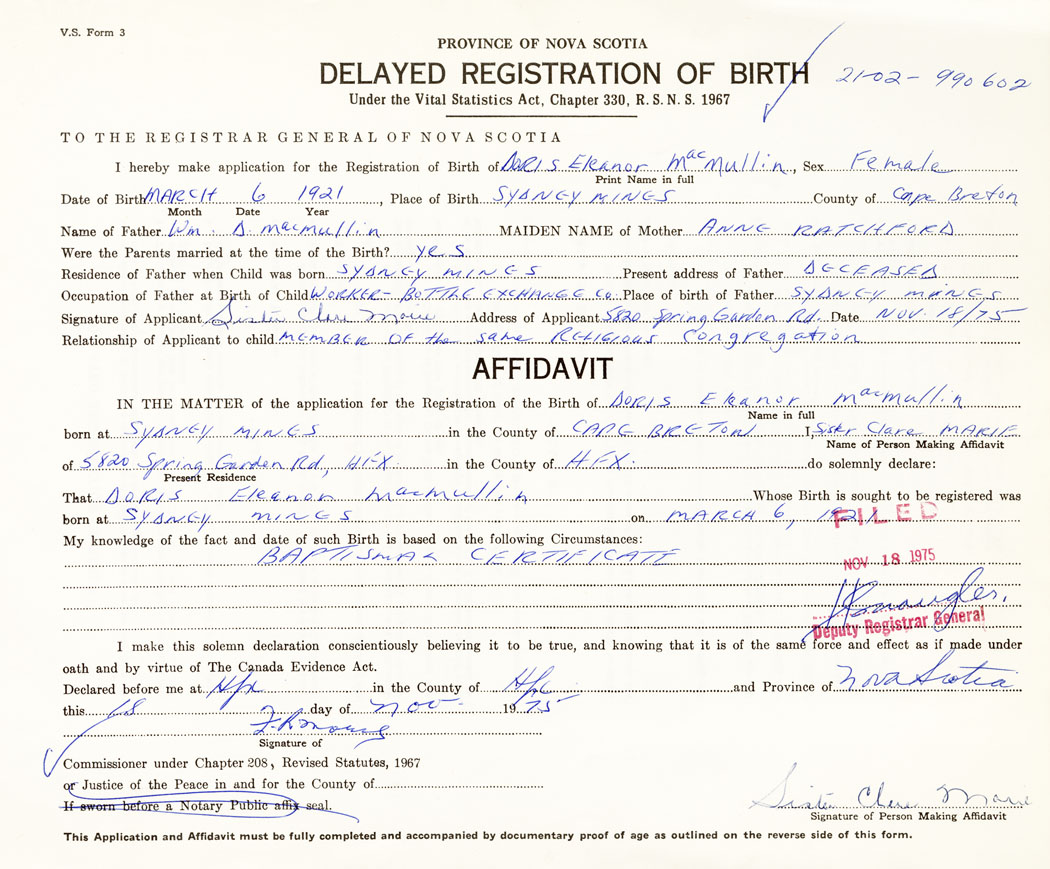 V.S. Form 3
PROVINCE OF NOVA SCOTIA
DELAYED REGISTRATION OF BIRTH 21-02-990602
Under the Vital Statistics Act, Chapter 330, R.S.N.S. 1967
TO THE REGISTRAR GENERAL OF NOVA SCOTIA
I hereby make application for the Registration of Birth of DORIS Eleanor MacMullin, Sex Female
Print Name in full
Date of Birth MARCH 6 1921, Place of Birth SYDNEY MINES County of Cape Breton
Month Date Year
Name of Father Wm. D. MacMullin MAIDEN NAME of Mother ANNE RATCHFORD
Were the Parents married at the time of the Birth? yes
Residence of Father when Child was born SYDNEY MINES Present address of Father DECEASED
Occupation of Father at Birth of Child WORKER - BOTTLE EXCHANGE Co. Place of birth of Father SYDNEY MINES
Signature of Applicant Sister Clare Marie Address of Applicant 5820 Spring Garden Rd. Date NOV. 18/75
Relationship of Applicant to child MEMBER OF the same RELIGIOUS Congregation
AFFIDAVIT
IN THE MATTER of the application for the Registration of the Birth of DORIS Eleanor MacMullin
Name in full
born at SYDNEY MINES in the County of CAPE BRETON I, Sister Clare MARIE
Name of Person Making Affidavit
of 5820 Spring Garden Rd, HFX. in the County of HFX. do solemnly declare:
Present Residence
That DORIS Eleanor MacMullin Whose Birth is sought to be registered was
born at SYDNEY MINES on MARCH 6, 1921
FILED
My knowledge of the fact and date of such Birth is based on the following Circumstances:
BAPTISMAL CERTIFICATE
NOV 18 1975
Deputy Registrar General
I make this solemn declaration conscientiously believing it to be true, and knowing that it is of the same force and effect as if made under
oath and by virtue of The Canada Evidence Act.
Declared before me at Hfx in the County of Hfx and Province of Nova Scotia
this 18 day of Nov. 1975
Signature of
Commissioner under Chapter 208, Revised Statutes, 1967
or Justice of the Peace in and for the County of
If sworn before a Notary Public affix seal.
Sister Clare Marie
Signature of Person Making Affidavit
This Application and Affidavit must be fully completed and accompanied by documentary proof of age as outlined on the reverse side of this form.